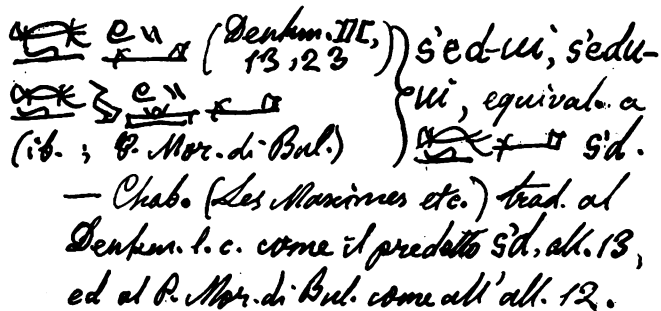 (Denkm. III, 13, 23) s'ed-ui, s'edu-
ui, equival. a
(ib.; P. Mor. di Bul.) s'd.
— Chab. (Les Maximes etc.) trad. al
Denkm. l. c. come il predetto s'd, all. 13,
ed al P. Mor. di Bul. come all' all. 12.